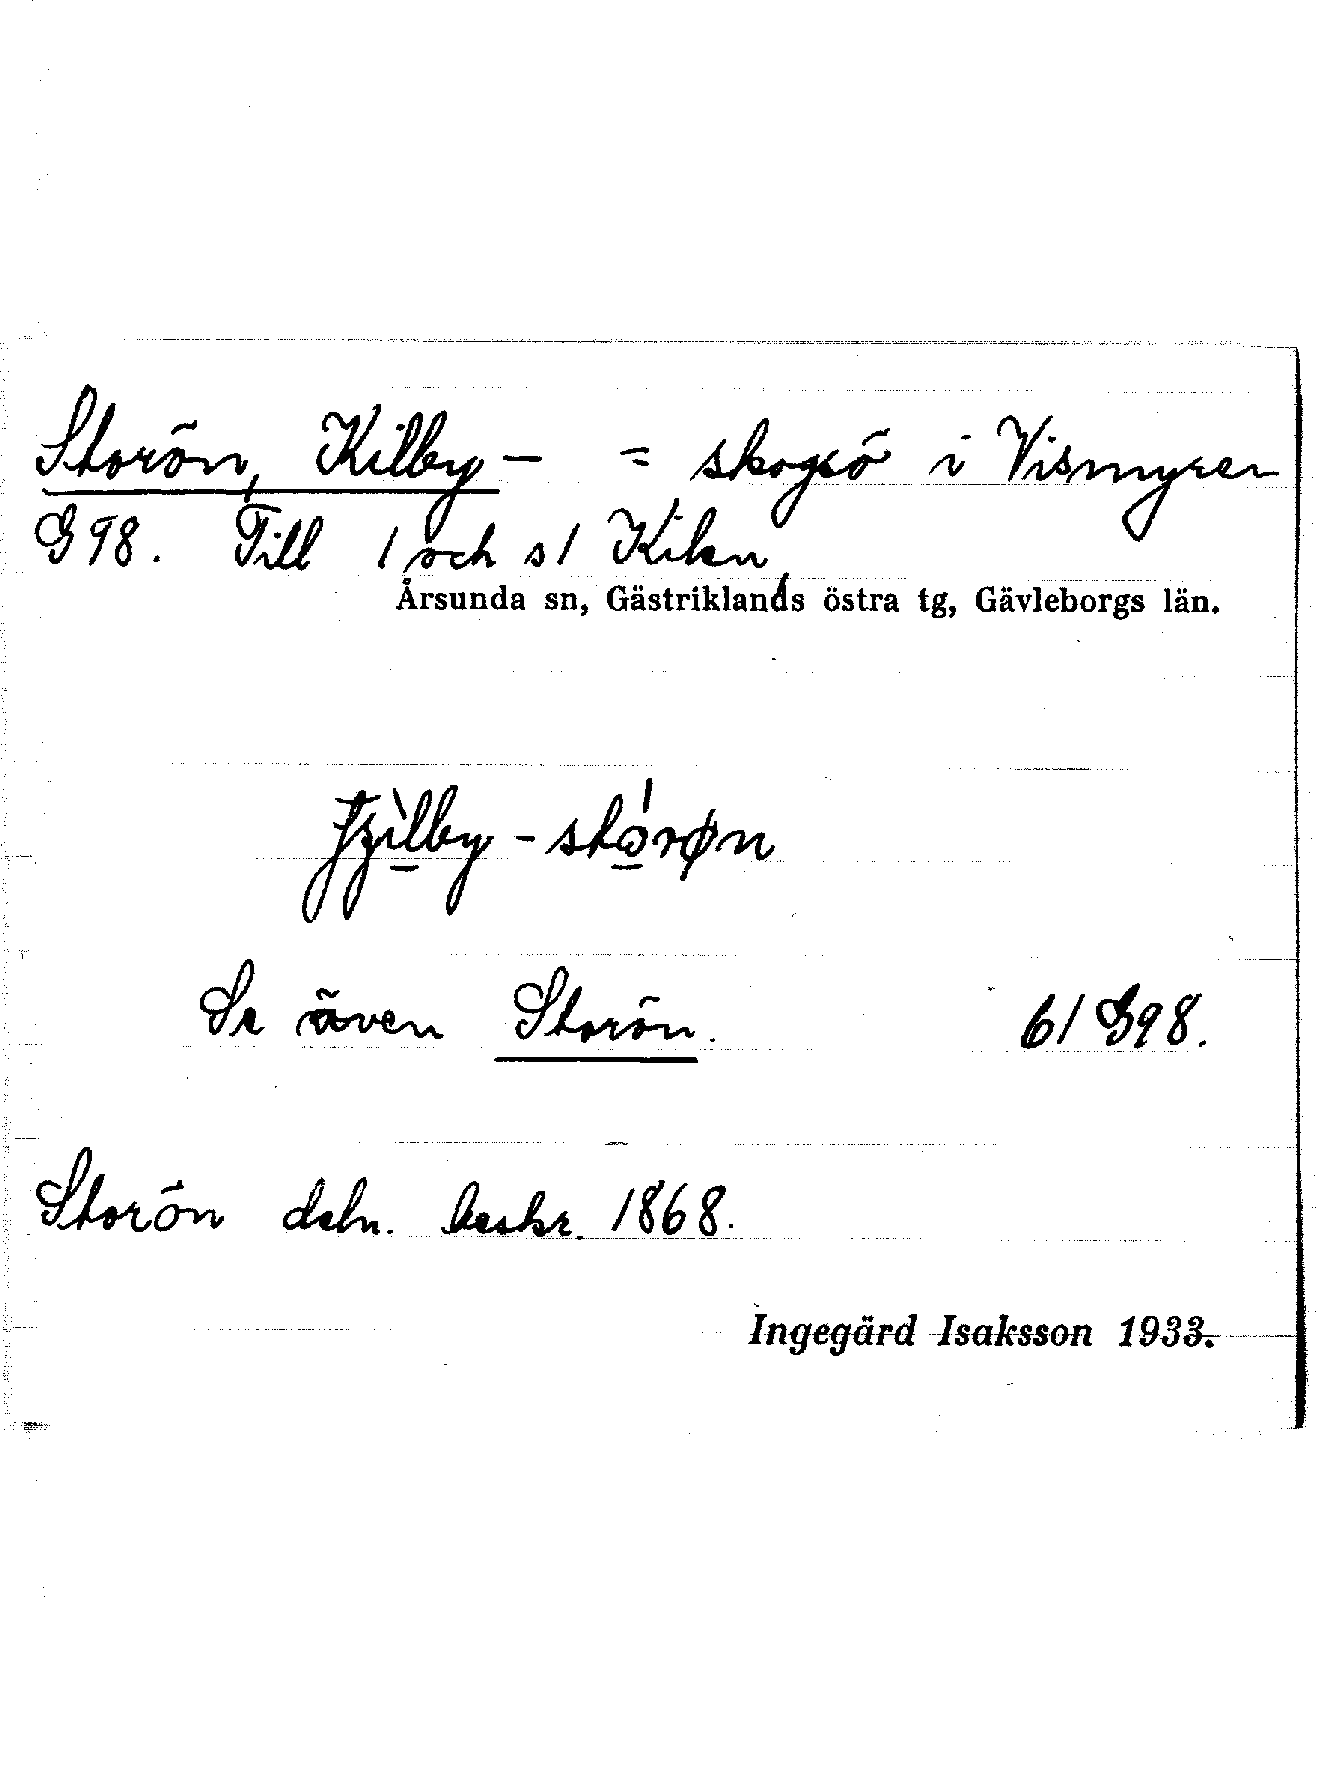 Storön, Kilby- = skogsö i Vismyren
G98. Till 1 och s1 Kilen
Årsunda sn, Gästriklands östra tg, Gävleborgs län.
-stórøn
Se även Storön. 61 G98.
Storön deln. beskr. 1868.
Ingegärd Isaksson 1933.